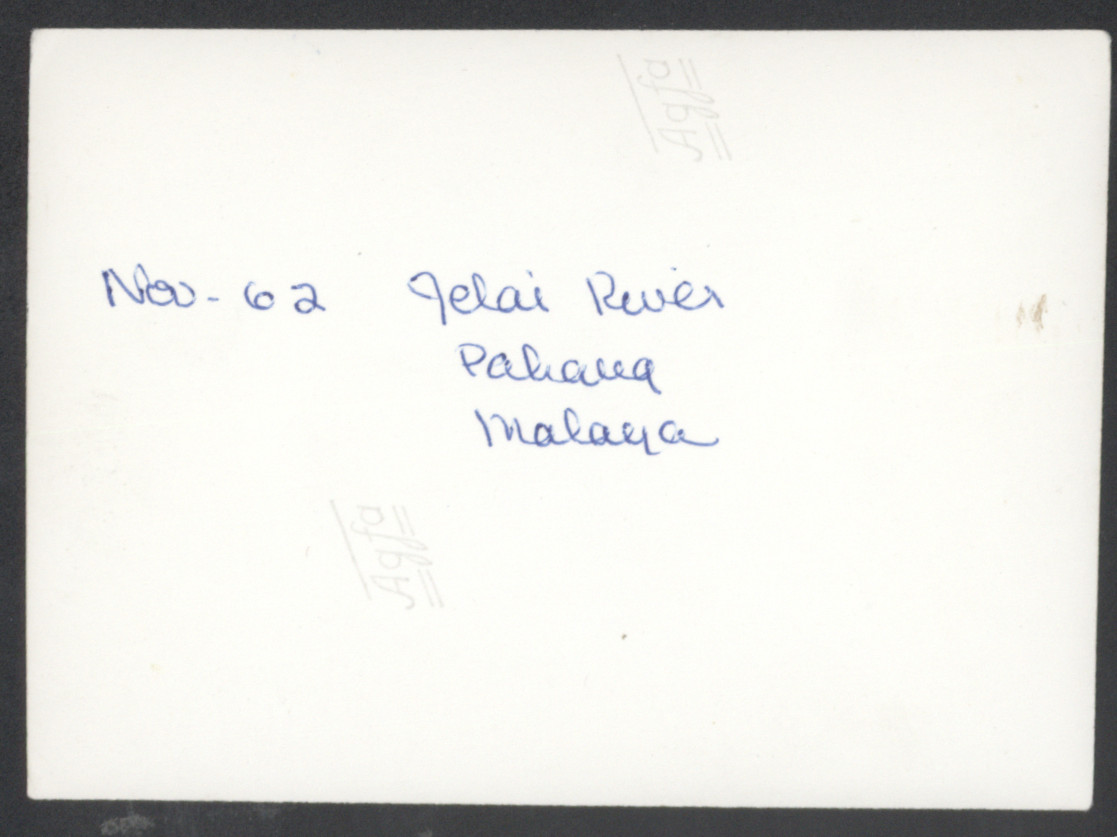 Agfa
Nov-62 Jelai River
Pahang
Malaya
Agfa